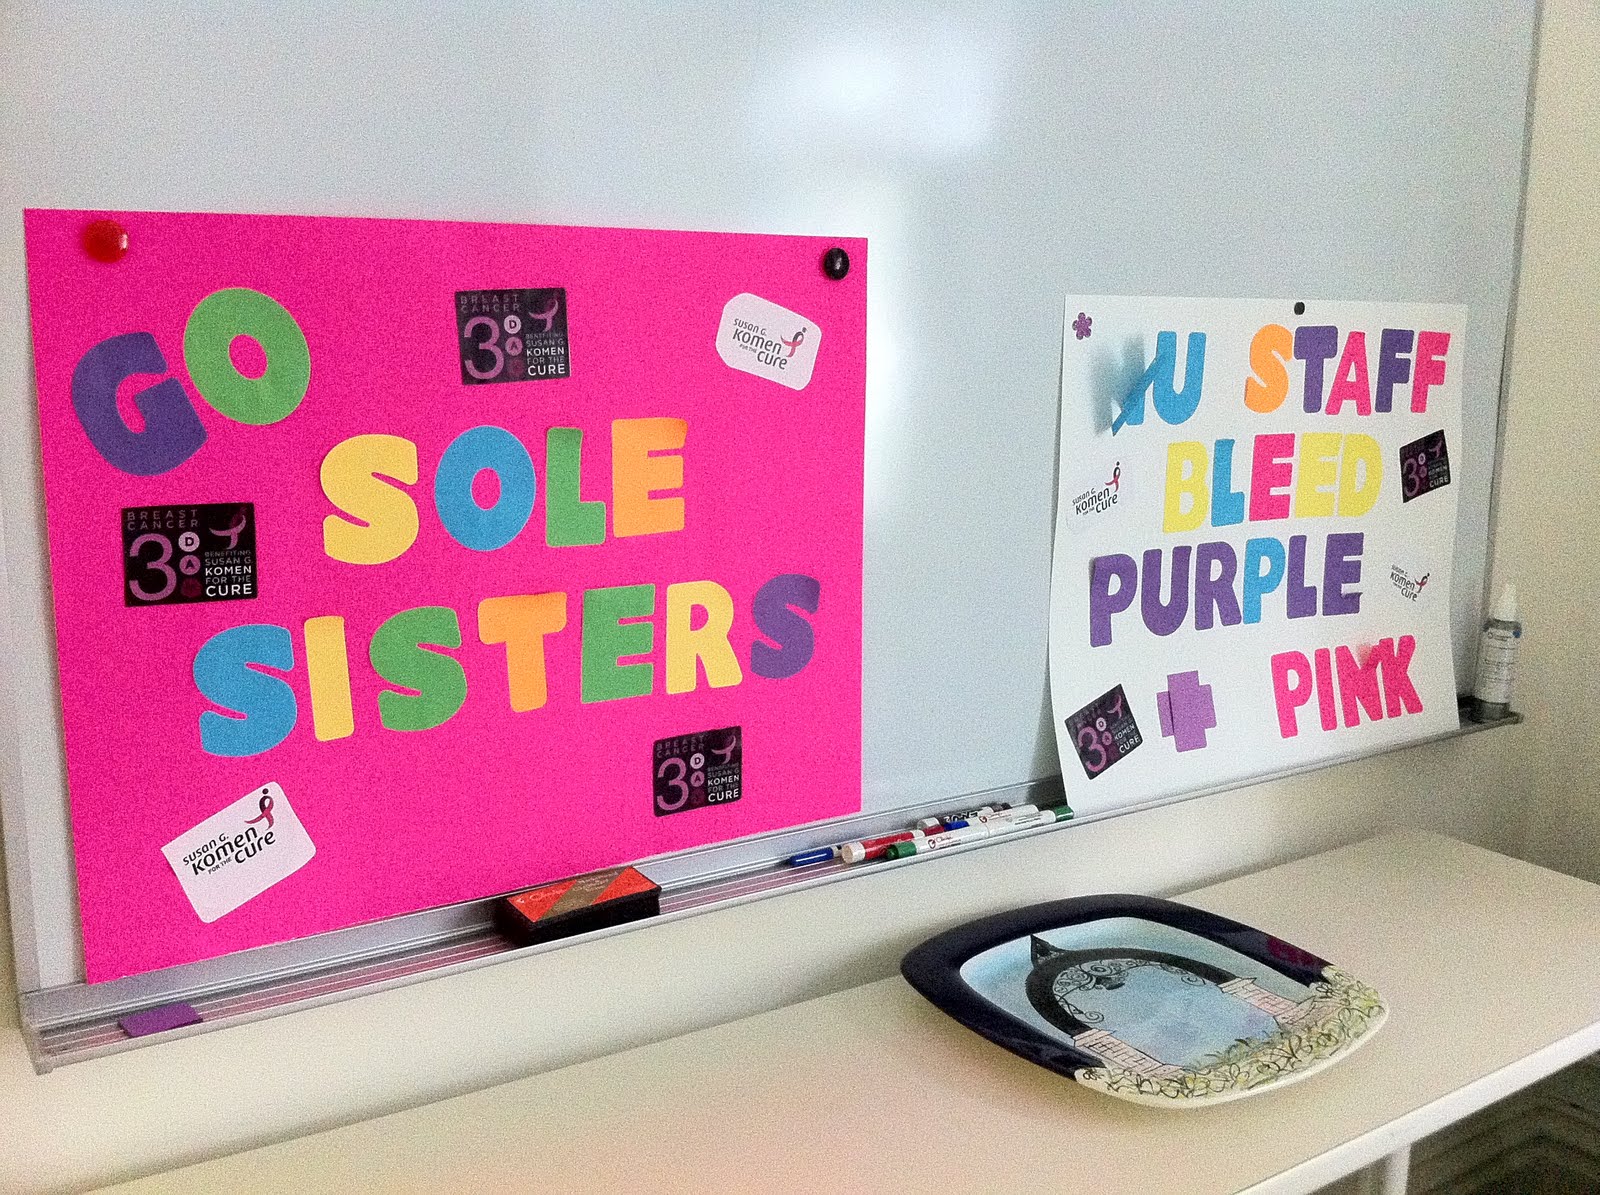 GO
SOLE
SISTERS
BREAST
CANCER
3
DA
BENEFITING
SUSAN G.
KOMEN
FOR THE
CURE
susan G.
Komen
FOR THE
cure
BREAST
CANCER
3
DA
BENEFITING
SUSAN G.
KOMEN
FOR THE
CURE
BREAST
CANCER
3
DA
BENEFITING
SUSAN G.
KOMEN
FOR THE
CURE
susan G.
Komen
FOR THE
cure
NU STAFF
BLEED
PURPLE
PINK
susan G.
Komen
FOR THE
cure
3
KOMEN
FOR THE
CURE
susan G.
Komen
cure
3
DA
KOMEN
FOR THE
CURE